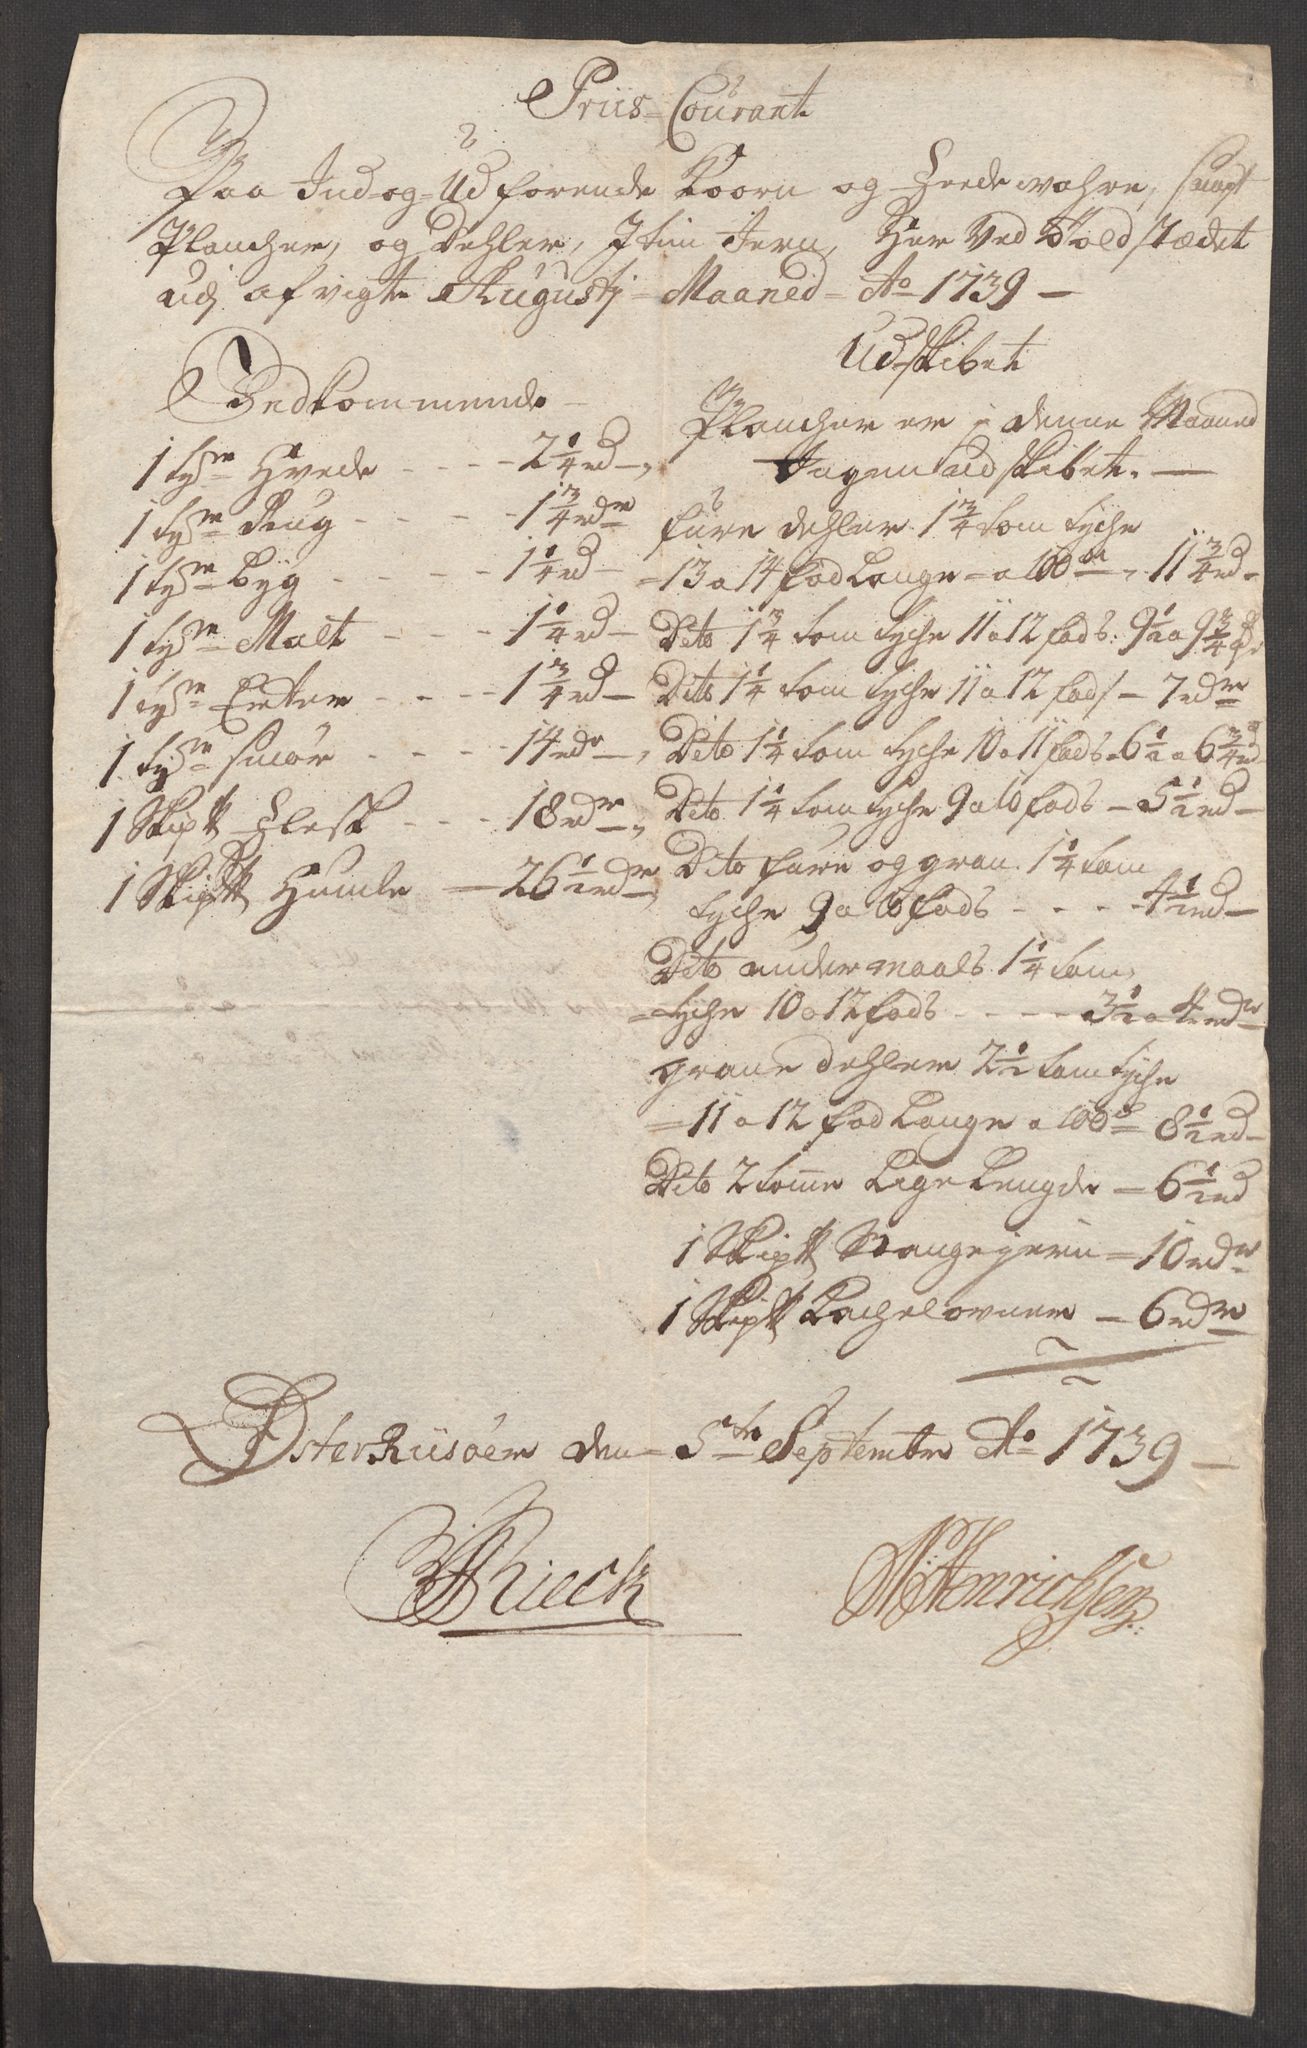 Priis-Courant
Paa Ind-og-Udførende Koorn og Feedewahre, sampt
Plancher, og Dehler, Item Jern, Her Ved Toldstædet
udj afvigte Augustj Maaned Ao 1739
Indkommende
1 tyne Hvede - - - - 2 1/4 rd
1 tyne Rug - - - - 1 3/4 rdr
1 tyne byg - - - - 1 1/4 rd
1 tyne Malt - - - - 1 1/4 rd
1 tyne Erter - - - - 1 3/4 rd
1 tyne smør - - - - 14 rdr
1 Skip℔ Flesk - - - 18 rdr
1 Skip℔ Humle — 26 1/2 rdr
Udskibet
Plancher er j denne Maaned
Ingen udskibet.
fure dehler 1 3/4 tom tyche
13 a 14 fod Lange - a 100de, 11 3/4 rd
Dito 1 3/4 tom tyche 11 a 12 fods 9 1/2 a 9 3/4 rd
Dito 1 1/4 tom tyche 11 a 12 fods - 7 rdr
Dito 1 1/4 tom tyche 10 a 11 fods 6 1/2 a 6 3/4 rd
Dito 1 1/4 tom tyche 9 a 10 fods - 5 1/2 rd
Dito fure og gran 1 1/4 tom
tyche 9 a 10 fods - - - - 4 1/2 rd
Dito undermaals 1 1/4 tom
tyche 10 a 12 fods - - - - 3 1/2 a 4 rdr
grane dehler 2 1/2 tom tyche
11 a 12 fod Lange a 100de 8 1/2 rd
Dito 2 tomme Lige Lengde - 6 1/2 rd
1 Skip℔ Stangejern - 10 rdr
1 Skip℔ Kachelovner - 6 rdr
Østerriisøer den 5te Septembr Ao 1739
Rieck
Henrichsen